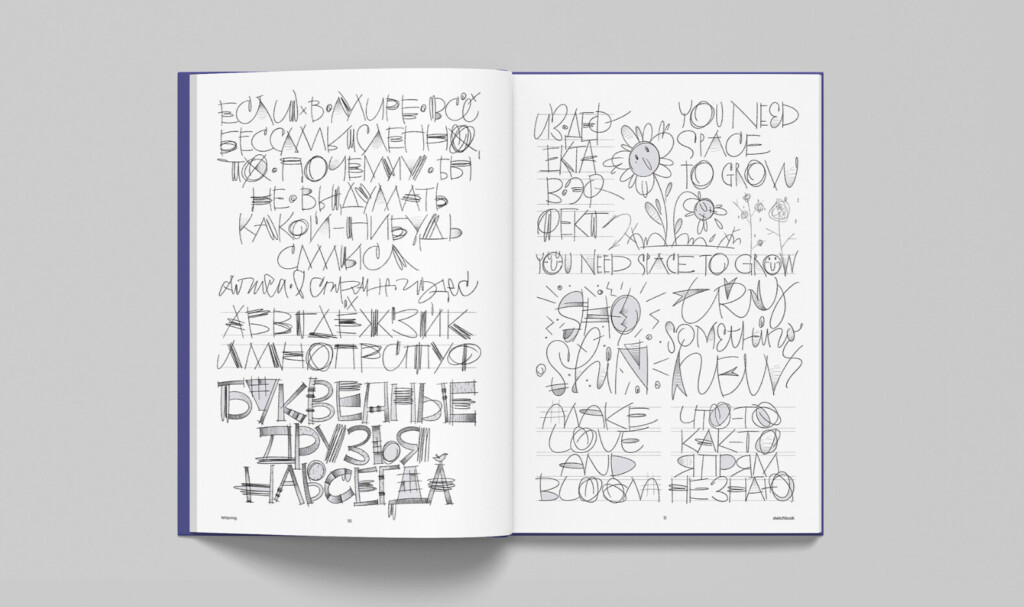 ЕСЛИ×В·МИРЕ·ВСЁ
БЕССМЫСЛЕННО,
ТО·ПОЧЕМУ·БЫ
НЕ·ВЫДУМАТЬ
КАКОЙ-НИБУДЬ
СМЫСЛ
алиса в стране чудес
АБВГДЕЖЗИК
ЛМНОПРСТУФ
БУКВЕННЫЕ
ДРУЗЬЯ
НАВСЕГДА
lettering
10
ИЗ·ДЕФ
ЕКТА
В·ЭФ
ФЕКТ
YOU NEED
SPACE
TO GROW
YOU NEED SPACE TO GROW
SHO
ShiN
TRY
SOMETHING
NEW
MAKE
LOVE
AND
BLOOM
ЧТО-ТО
КАК-ТО
Я ПРЯМ
НЕ ЗНАЮ
11
sketchbook